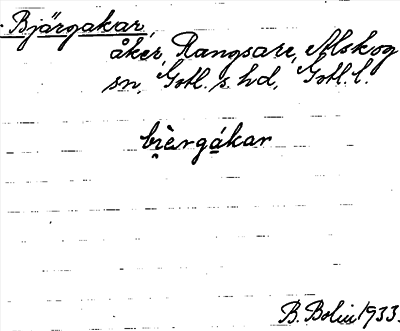 Bjärgakar,
åker, Rangsare, Alskog
sn, Gotl. s. hd, Gotl. l.
bi̯èrgákar
B. Bolin 1933.